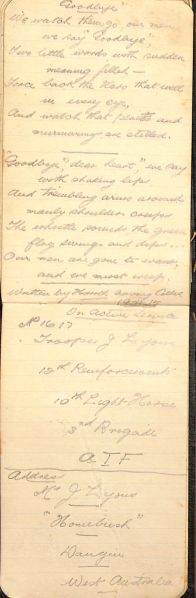 Goodbye"
We watch them go, our men
we say "Goodbye",
Two little words with sudden
meaning filled —
Force back the tears that well
in every eye,
And watch that plaints and
murmuring are stilled.
"Goodbye" dear heart," we say
with shaking lips
And trembling arms around
manly shoulders creeps
The whistle sounds the green
flag swings and dips..
Our men are gone to war,
and we must weep.
Written by
On Active Service
No 1617
Trooper J Lyons
12th Reinforcements
10th Light Horse
3rd Brigade
A I F
Address
Mrs J Lyons
"Homebush"
Dangin
West Australia